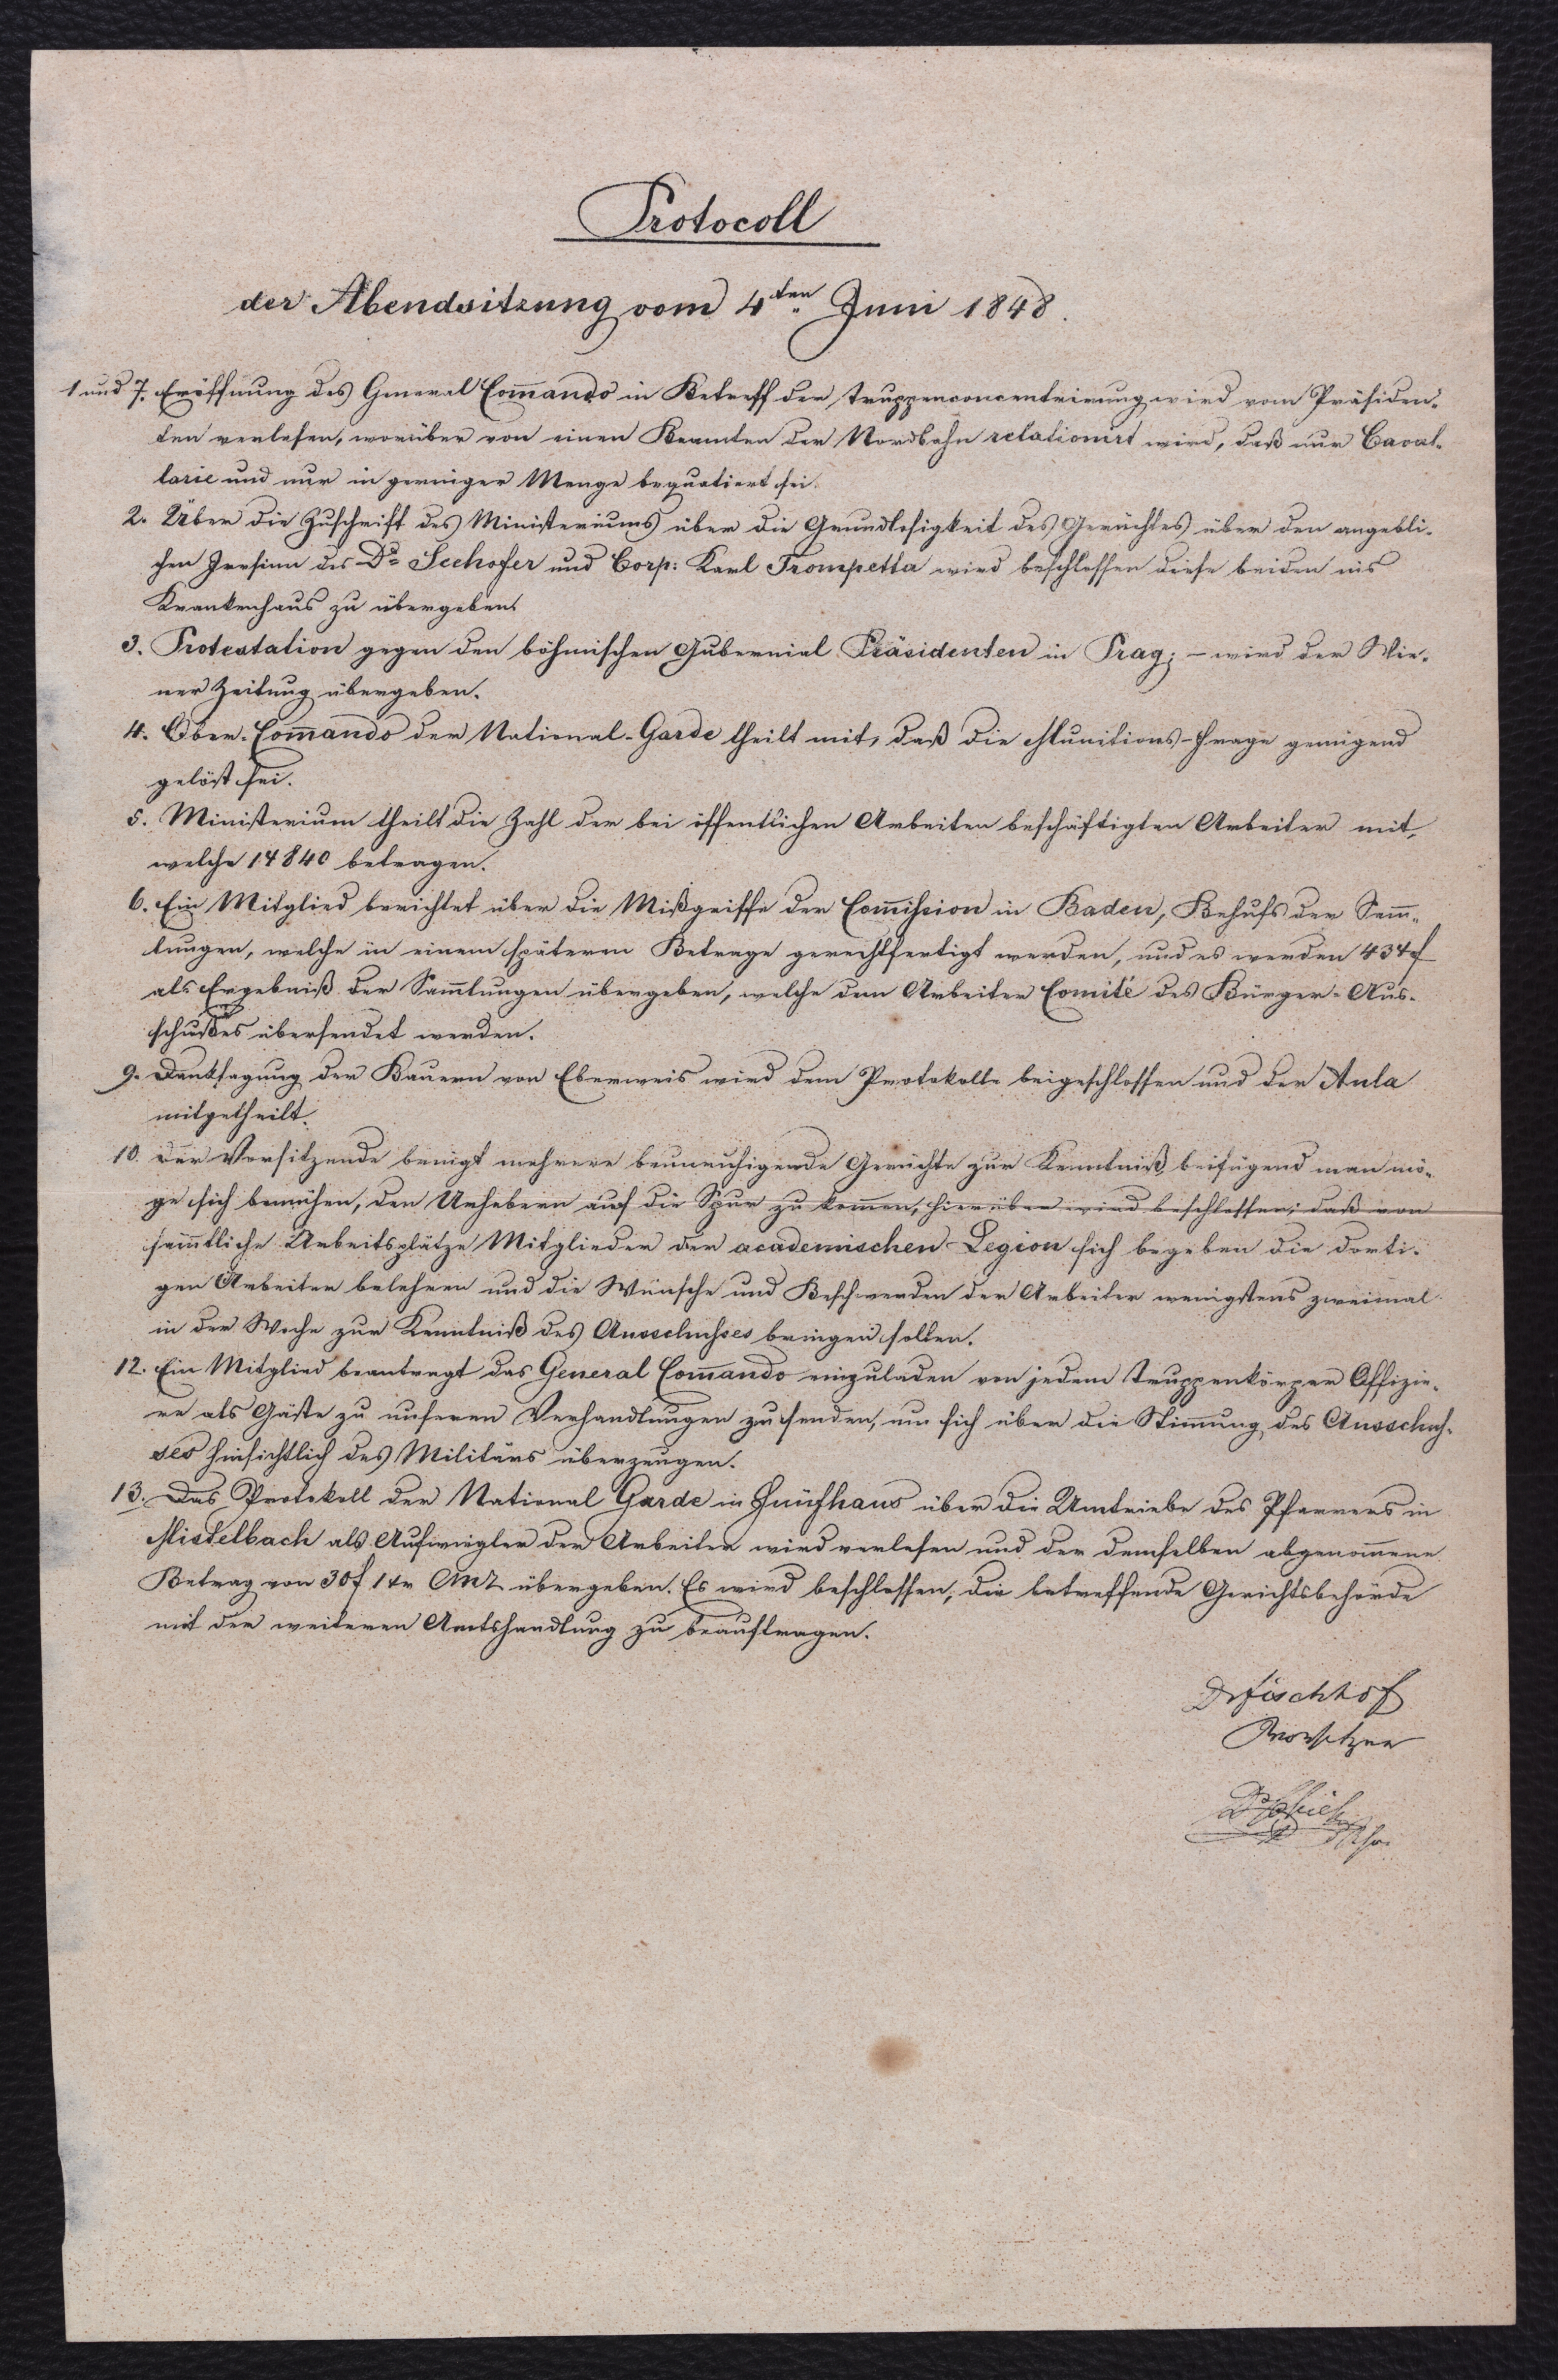 Protocoll
der Abendsitzung vom 4ten Juni 1848.
1 und 7. Eröffnung des General Com̅ando in Betreff der Truppenconcentrirung wird vom Präsiden-
ten verlesen, worüber von einen Beamten der Nordbahn relationirt wird, daß nur Caval-
larie und nur in geringer Menge bequatiert sei.
2. Über die Zuschrift des Ministeriums über die Grundlosigkeit des Gerüchtes über den angebli-
chen Irrsinn des Dr Seehofer und Corp: Karl Trompetta wird beschlossen diese beiden ins
Krankenhaus zu übergeben.
3. Protestation gegen den böhmischen Gubernial Präsidenten in Prag; – wird der Wie-
ner Zeitung übergeben.
4. Ober-Com̅ando der National-Garde theilt mit, daß die Munitions-Frage genügend
gelöst sei.
5. Ministerium theilt die Zahl der bei öffentlichen Arbeiten beschäftigten Arbeiter mit,
welche 14840 betragen.
6. Ein Mitglied berichtet über die Mißgriffe der Com̅ission in Baden, Behufs der Sam̅-
lungen, welche in einem späteren Betrage gerechtfertigt werden, und es werden 434 f
als Ergebniß der Sam̅lungen übergeben, welche dem Arbeiter Comité des Bürger-Aus-
schußes übersendet werden.
9. Danksagung der Bauern von Eberweis wird dem Protokolle beigeschlossen und der Aula
mitgetheilt.
10. Der Vorsitzende bringt mehrere beunruhigende Gerüchte zur Kenntniß beifügend man mö-
ge sich bemühen, den Urhebern auf die Spur zu kom̅en, hierüber wird beschlossen; daß von
sam̅tliche Arbeitsplätze Mitglieder der academischen Legion sich begeben die dorti-
gen Arbeiter belehren und die Wünsche und Beschwerden der Arbeiter wenigstens zweimal
in der Woche zur Kenntniß des Ausschusses bringen sollen.
12. Ein Mitglied beantragt das General Com̅ando einzuladen von jedem Truppenkörper Offizie-
re als Gäste zu unseren Verhandlungen zu senden, um sich über die Stim̅ung des Ausschus-
ses hinsichtlich des Militärs überzeugen.
13. Das Protokoll der National Garde in Fünfhaus über die Umtriebe des Pfarrers in
Mistelbach als Aufwiegler der Arbeiter wird verlesen und der demselben abgenom̅ene
Betrag von 30 f 1 kr CMz übergeben. Es wird beschlossen, die betreffende Gerichtsbehörde
mit der weiteren Amtshandlung zu beauftragen.
Dr Fischhof
Vorsitzer